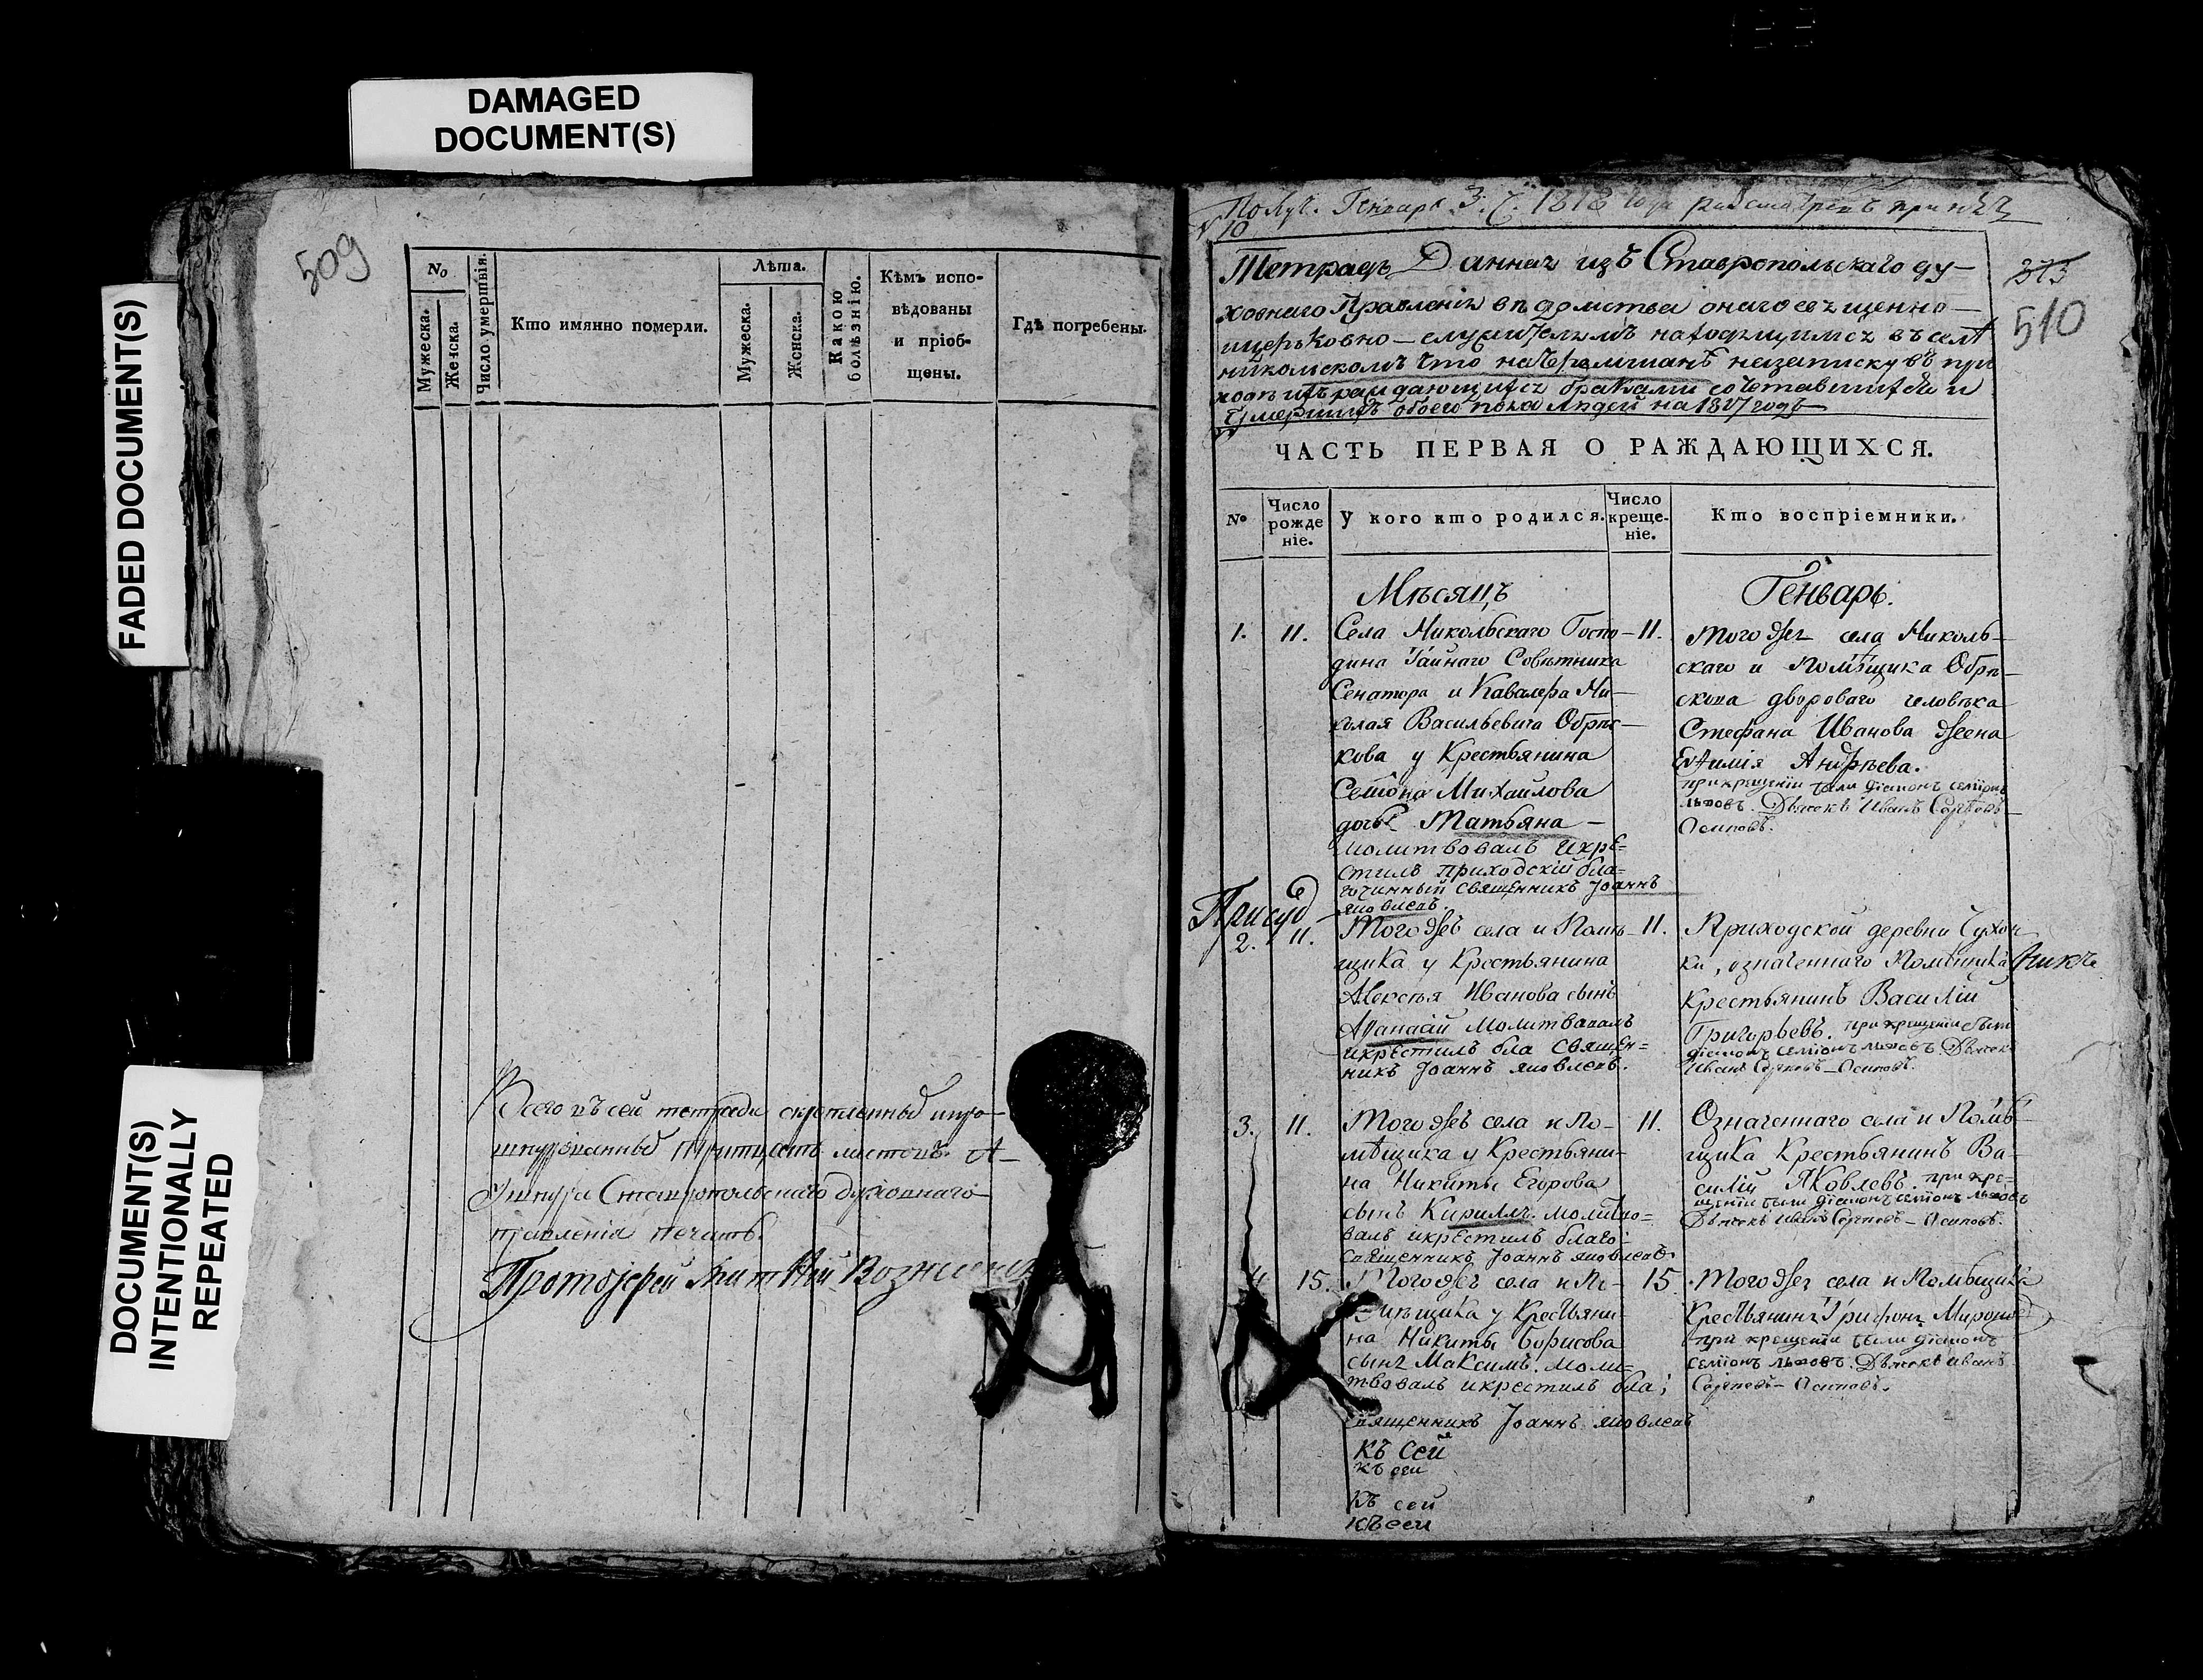 DAMAGED
DOCUMENT(S)
FADED DOCUMENT(S)
DOCUMENT(S)
INTENTIONALLY
REPEATED
509
№
Мужеска.
Женска.
Число умертвія.
Кто имянно померли.
Лѣта.
Мужеска.
Женска.
Какою
болѣзнію.
Кѣмъ испо-
вѣдованы
и пріоб-
щены.
Гдѣ погребены.
Всего въ сей тетради
листовъ
Ставропольскаго духовнаго
правления печать.
Протоіерей
Получ. Генваря 3. 1818 года
10
Тетрадь Данная изъ Ставропольскаго ду-
ховнаго Правленія вѣдомства онаго священно-
церьковно-служителямъ находящимся въ селѣ
никольскомъ что на Черемшанѣ на записку въ при
ходѣ ихъ раждающихся браками сочетавшихся и
умершихъ обоего пола людей на 1817 годъ
373
510
ЧАСТЬ ПЕРВАЯ О РАЖДАЮЩИХСЯ.
№
Число
рожде
ніе.
У кого кто родился.
Число
креще-
ніе.
Кто воспріемники.
Мѣсяцъ Генварь.
1. 11. Села Никольскаго Госпо-
дина Тайнаго Совѣтника
Сенатора и Кавалера Ни-
колая Васильевича Обрѣс-
кова у Крестьянина
Семіона Михайлова
дочь Татьяна -
молитвовалъ икре-
стилъ приходскій бла-
гочинный священникъ Іоаннъ
яковлевъ.
11. Того жъ села Николь-
скаго и Помѣщика Обрѣ-
скова двороваго человѣка
Стефана Иванова жена
Евѳимія Андрѣева.
при крещеніи были діаконъ семіонъ
львовъ. Дьячокъ Иванъ Сергѣевъ-
Осиповъ.
2. 11. Того жъ села и Помѣ-
щика у Крестьянина
Алексѣя Иванова сынъ
Афанасій молитвовалъ
икрестилъ бла священ-
никъ Іоаннъ яковлевъ.
11. Приходской деревни
ки, означенного Помѣщика
Крестьянинъ Василій
Григорьевъ. при крещеніи были
діаконъ семіонъ львовъ. Дьячокъ
Иванъ Сергѣевъ-Осиповъ.
3. 11. Того жъ села и По-
мѣщика у Крестьяни-
на Никиты Егорова
сынъ Кириллъ. молитво-
валъ икрестилъ благо:
священникъ Іоаннъ яковлевъ.
11. Означеннаго села и Помѣ-
щика Крестьянинъ Ва-
силій Яковлевъ. при кре-
щеніи были діаконъ семіонъ львовъ
Дьячокъ Иванъ Сергѣевъ-Осиповъ.
15. Того жъ села и По-
мѣщика у Крестьяни-
на Никиты Борисова
сынъ Максимъ. моли-
твовалъ икрестилъ бла;
священникъ Іоаннъ яковлевъ
15. Того жъ села и Помѣщика
Крестьянинъ Мироновъ
при крещеніи были діаконъ
семіонъ львовъ. Дьячокъ иванъ
Сергѣевъ-Осиповъ.
къ сей
къ сеи
къ сеи
къ сеи